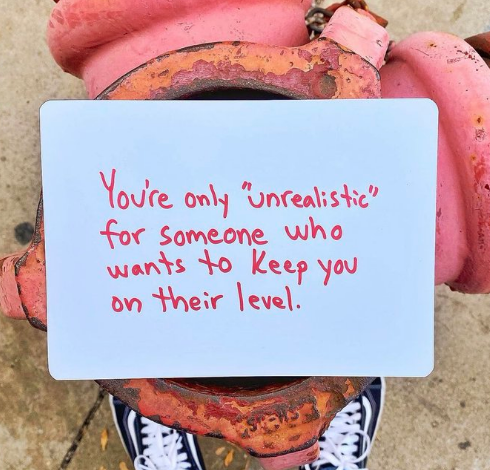 You're only "unrealistic"
for someone who
wants to keep you
on their level.